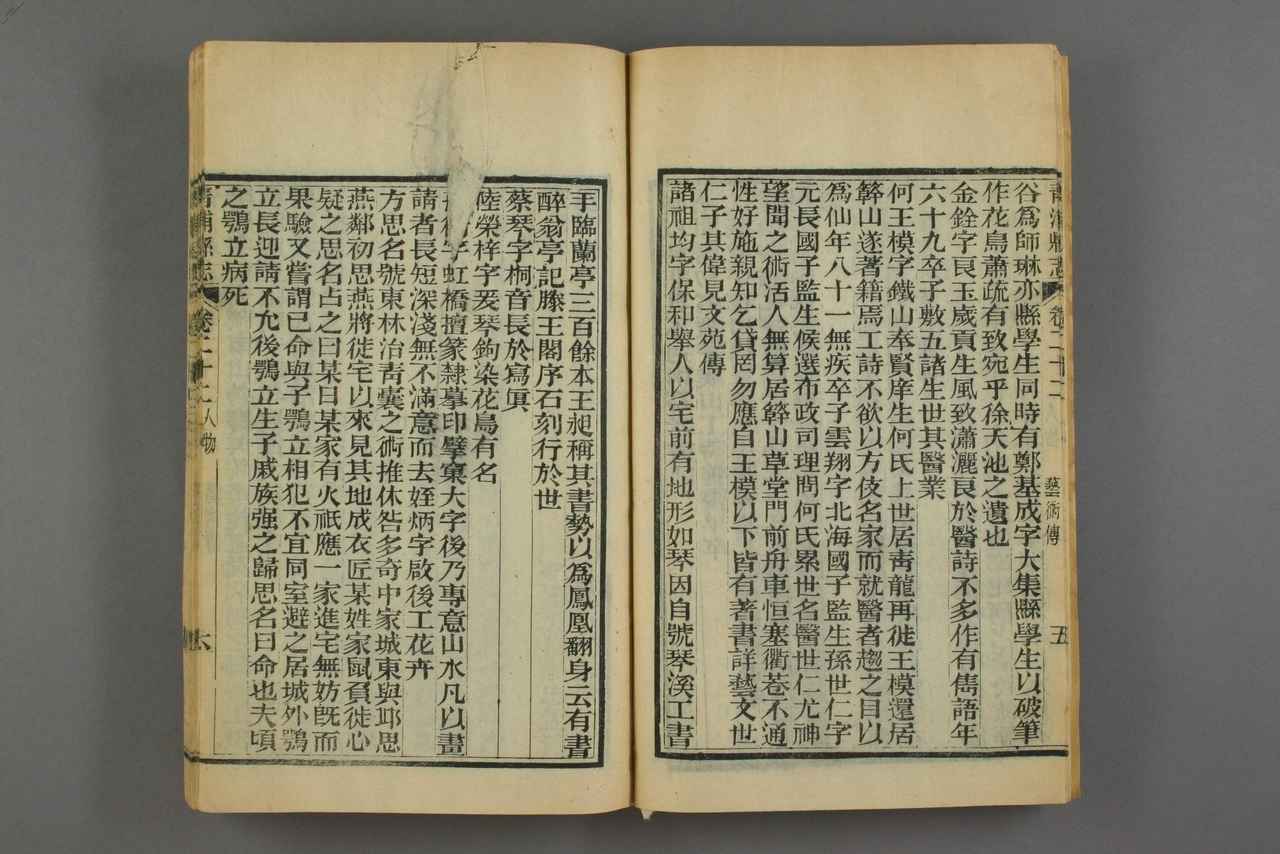 青浦縣志 卷二十二 藝術傳 五
谷爲師琳亦縣學生同時有鄭基成字大集縣學生以破筆
作花鳥蕭疏有致宛乎徐天池之遺也
金銓字良玉歲貢生風致瀟灑良於醫詩不多作有雋語年
六十九卒子敷五諸生世其醫業
何王模字鐵山奉賢庠生何氏上世居靑龍再徙王模還居
簳山遂著籍焉工詩不欲以方伎名家而就醫者趨之目以
爲仙年八十一無疾卒子雲翔字北海國子監生孫世仁字
元長國子監生候選布政司理問何氏累世名醫世仁尤神
望聞之術活人無算居簳山草堂門前舟車恒塞衢巷不通
性好施親知乞貸罔勿應自王模以下皆有著書詳藝文世
仁子其偉見文苑傳
諸祖均字保和舉人以宅前有地形如琴因自號琴溪工書
手臨蘭亭三百餘本王昶稱其書勢以爲鳳凰翻身云有書
醉翁亭記滕王閣序石刻行於世
蔡琴字桐音長於寫眞
陸榮梓字爰琴鉤染花鳥有名
字虹橋擅篆隸摹印擘窠大字後乃專意山水凡以畫
請者長短深淺無不滿意而去姪炳字啟後工花卉
方思名號東林治靑囊之術推休咎多奇中家城東與邱思
燕鄰初思燕將徙宅以來見其地成衣匠某姓家鼠負徙心
疑之思名占之曰某日某家有火祇應一家進宅無妨旣而
果驗又嘗謂已命與子鶚立相犯不宜同室避之居城外鶚
立長迎請不允後鶚立生子戚族强之歸思名曰命也夫頃
之鶚立病死
青浦縣志 卷二十二 人物 六